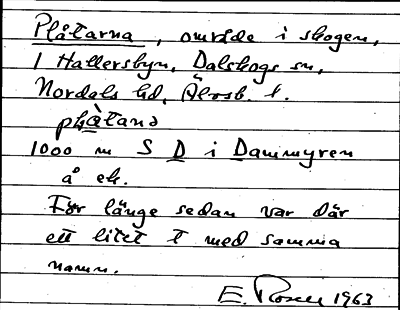 Plåtarna, område i skogen,
i Hallersbyn, Dalskogs sn,
Nordals hd, Älvsb. l.
plàtana
1000 m S D i Dammyren
å ek.
För länge sedan var där
ett litet t med samma
namn.
E. Rosell 1963